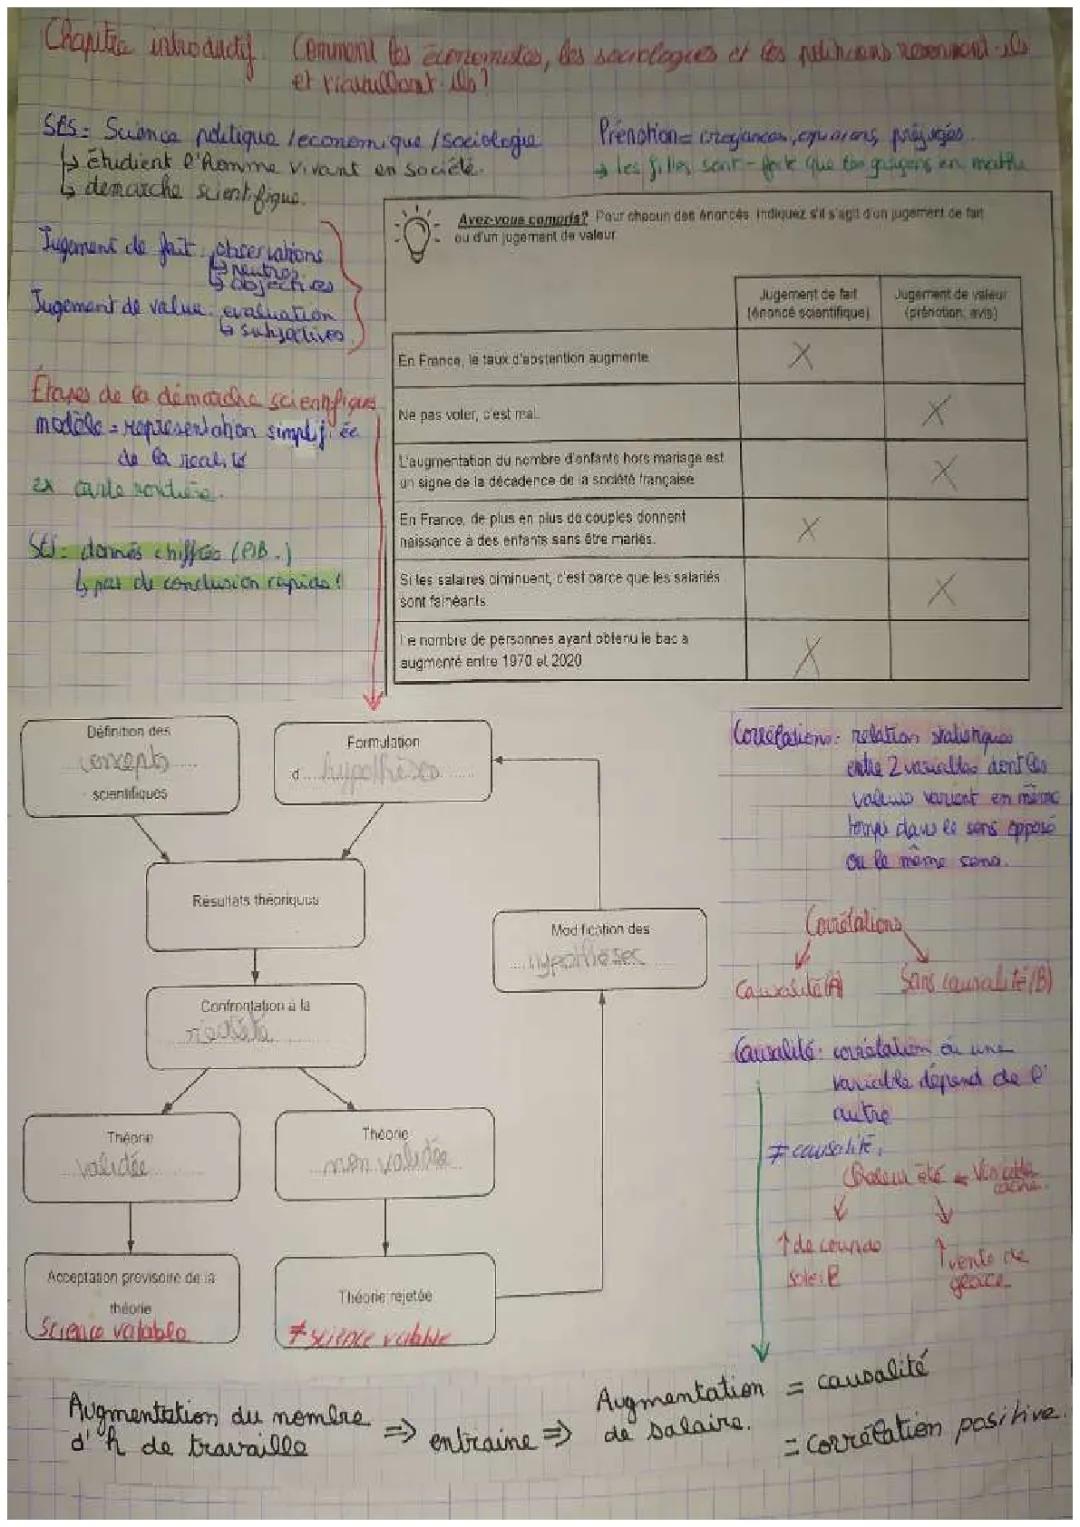 Chapitre introductif. Comment les économistes, les sociologues et les politiciens raisonnent-ils
et travaillent-ils?
SES= Science politique/economique/sociologie
↳ étudient l'homme vivant en société.
↳ demarche scientifique.
Prénotion= croyances, opinions, préjugés.
→ les filles sont - forte que les garçons en maths
Jugement de fait: observations
↳ neutres
↳ objectives
Jugement de valeur: evaluation
↳ subjectives
Avez-vous compris? Pour chacun des énoncés, indiquez s'il s'agit d'un jugement de fait
ou d'un jugement de valeur
Jugement de fait
(énoncé scientifique)
Jugement de valeur
(prénotion, avis)
En France, le taux d'abstention augmente. X
Ne pas voler, c'est mal. X
L'augmentation du nombre d'enfants hors mariage est
un signe de la décadence de la société française X
En France, de plus en plus de couples donnent
naissance à des enfants sans être mariés. X
Si les salaires diminuent, c'est parce que les salariés
sont fainéants. X
Le nombre de personnes ayant obtenu le bac a
augmenté entre 1970 et 2020 X
Étapes de la démarche scientifique
modèle = représentation simplifiée
de la réalité
ex carte routière.
SES: donnés chiffrés (PIB..)
↳ pas de conclusion rapide!
Définition des
concepts
scientifiques
Formulation
d' hypothèses
Résultats théoriques
Confrontation à la
réalité
Modification des
hypothèses
Théorie
validée
Théorie
non validée
Acceptation provisoire de la
théorie
Science valable
Théorie rejetée
≠ science valable
Corrélations: relation statistiques
entre 2 variables dont les
valeurs varient en même
temps dans le sens opposé
ou le même sens.
Corrélations
Causalité(A)
Sans causalité(B)
Causalité: corrélation où une
variable dépend de l'
autre
≠ causalité,
Chaleur été = Variable
caché.
↑ de coups de
soleil
↑ vente de
glace
Augmentation du nombre
d'h de travaille
⇒ entraine ⇒
Augmentation
de salaire.
= causalité
= corrélation positive.